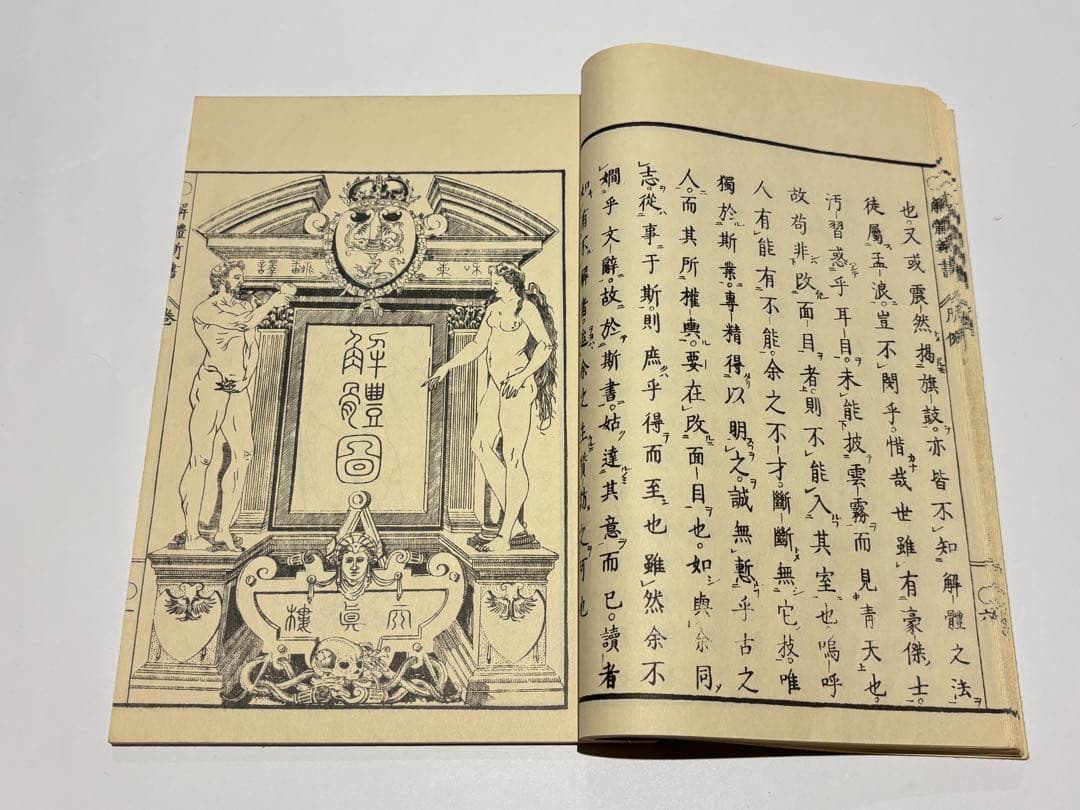 解體新書
凡例
六
也又或震然揭旗鼓。亦皆不知解體之法
徒屬孟浪。豈不閔乎。惜哉世雖有豪傑士。
汚習惑乎耳目。未能披雲霧而見青天也。
故苟非改面目者。則不能入其室也嗚呼
人有能有不能。余之不才。斷斷無它技。唯
獨於斯業。專精得以明之。誠無慙乎古之
人。而其所權輿。要在改面目也。如與余同
志。從事于斯。則庶乎得而至也雖然余不
嫺乎文辭。故於斯書。姑達其意而已。讀者
有不解者。余之生之可也
譯
解體圖
天眞樓
解體新書
卷